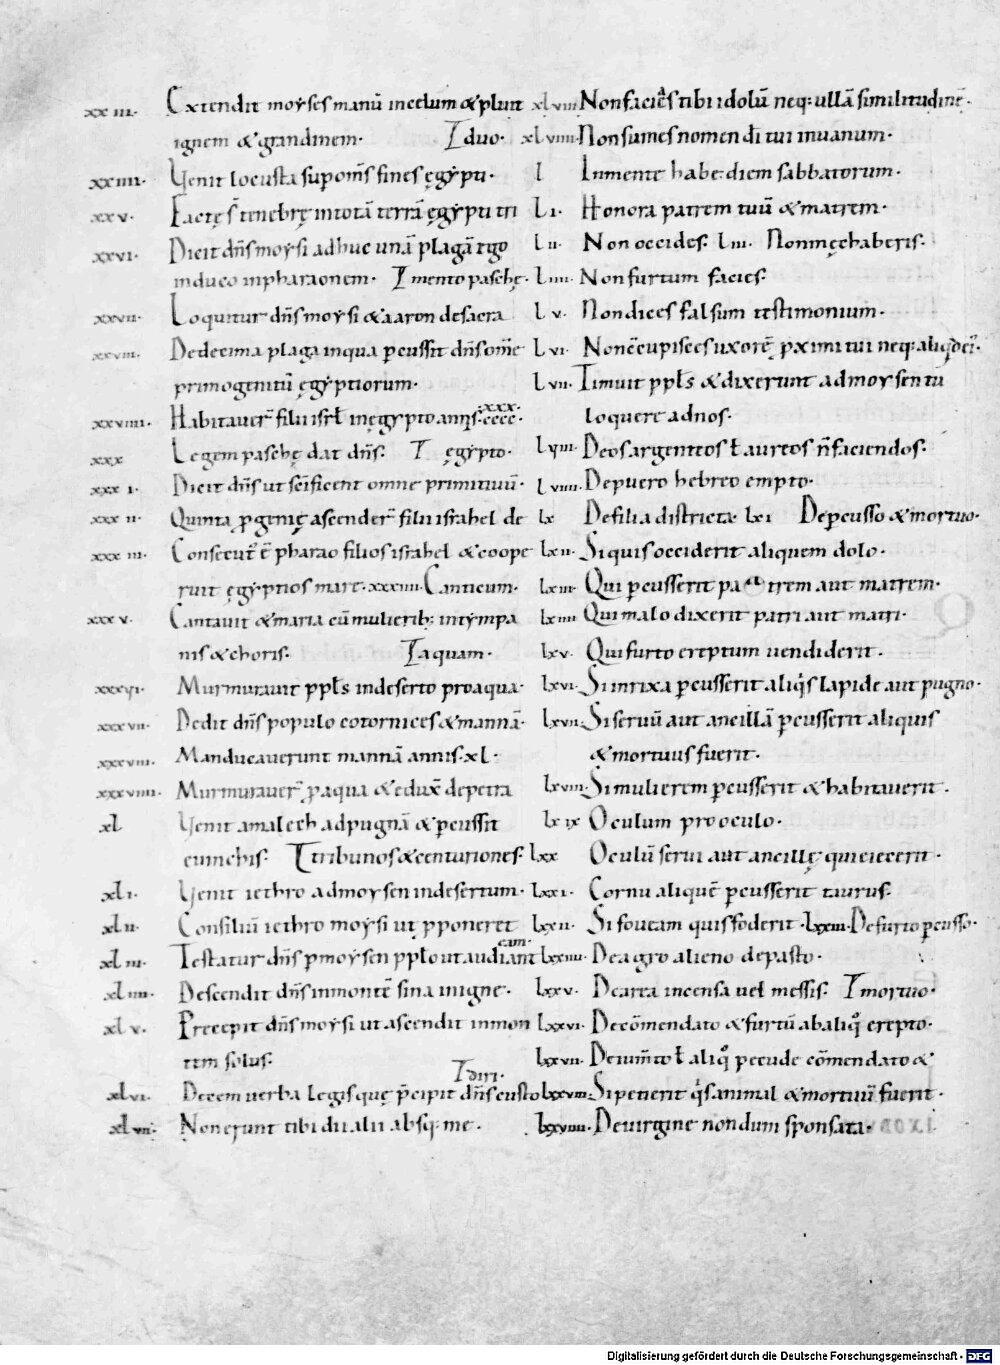 xxiii. Extendit moyses manū incelum & pluit
ignem & grandinem. duo.
xxiiii. Venit locusta sup om̄s fines ęgypti.
xxv. Factę s̄ tenebrę intotā terrā ęgypti tri
xxvi. Dicit dn̄s moysi adhuc unā plagā ego
induco inpharaonem. mento paschę.
xxvii. Loquitur dn̄s moysi & aaron desacra
xxviii. Dedecima plaga inqua p̄cussit dn̄s om̄e
primogenitū ęgyptiorum.
xxviiii. Habitauer̄ filii isrł inęgypto annis. cccc. xxx.
xxx Legem paschę dat dn̄s. ęgypto.
xxxi. Dicit dn̄s ut sc̄ificent omne primitiuū.
xxxii. Quinta p̄genię ascender̄ filii israhel de
xxxiii. Consecut᷒ ē pharao filios israhel & coope
ruit ęgyptios mare. xxxiiii. Canticum.
xxxv. Cantauit & maria cū mulierib; intympa
nis & choris. aquam.
xxxvi. Murmurauit ppłs indeserto proaqua.
xxxvii. Dedit dn̄s populo coturnices & mannā.
xxxviii. Manducauerunt mannā annis. xl.
xxxviiii. Murmurauer̄ p̄aqua & edux̄ depetra
xl Venit amalech adpugnā & p̄cussit
eum tribunos & centuriones.
xli. Venit iethro admoysen indesertum.
xlii. Consiliū iethro moysi ut p̄poneret
xliii. Testatur dn̄s p̄moysen ppło ut audiant eam.
xliiii. Descendit dn̄s inmontē sina inigne.
xlv. Precepit dn̄s moysi ut ascendit inmon
tem solus. diri.
xlvi. Decem uerba legis quę p̄cipit dn̄s custo
xlvii. Non erunt tibi dii alii absq; me.
xlviii Non facies tibi idolū neq; ullā similitudinē.
xlviiii. Non sumes nomen dī tui inuanum.
l Inmente habe diem sabbatorum.
li. Honora patrem tuū & matrem.
lii. Non occides. liii. Non męchaberis.
liiii. Non furtum facies.
lv. Non dices falsum testimonium.
lvi Non ccupisces uxorē p̄ximi tui neq;
lvii. Timuit ppłs & dixerunt admoysen tu
loquere adnos.
lviii. Deos argenteos ł aureos n̄ faciendos.
lviiii. Depuero hebreo empto.
lx Defilia districta. lxi Dep̄cusso & mortuo.
lxii. Siquis occiderit aliquem dolo.
lxiii. Qui p̄cusserit patrem aut matrem.
lxiiii Qui maledixerit patri aut matri.
lxv. Qui furto ereptum uendiderit.
lxvi. Si inrixa p̄cusserit aliq̄s lapide aut pugno.
lxvii. Si seruū aut ancillā p̄cusserit aliquis
& mortuus fuerit.
lxviii Si mulierem p̄cusserit & habitauerit.
lxix Oculum pro oculo.
lxx Oculū serui aut ancillę qui eiecerit.
lxxi. Cornu aliquē p̄cusserit taurus.
lxxii. Si foueam quis foderit. lxxiii. De furto p̄cusso.
lxxiiii De agro alieno depasto.
lxxv. De area incensa uel messis. mortuo.
lxxvi. Decōmendato & furtū ab aliq̊ erepto.
lxxvii. Deiumto ł aliq̊ pecude cōmendato &
lxxviii Si petierit q̄s animal & mortuū fuerit.
lxxviiii. Deuirgine nondum sponsata.
Digitalisierung gefördert durch die Deutsche Forschungsgemeinschaft - DFG